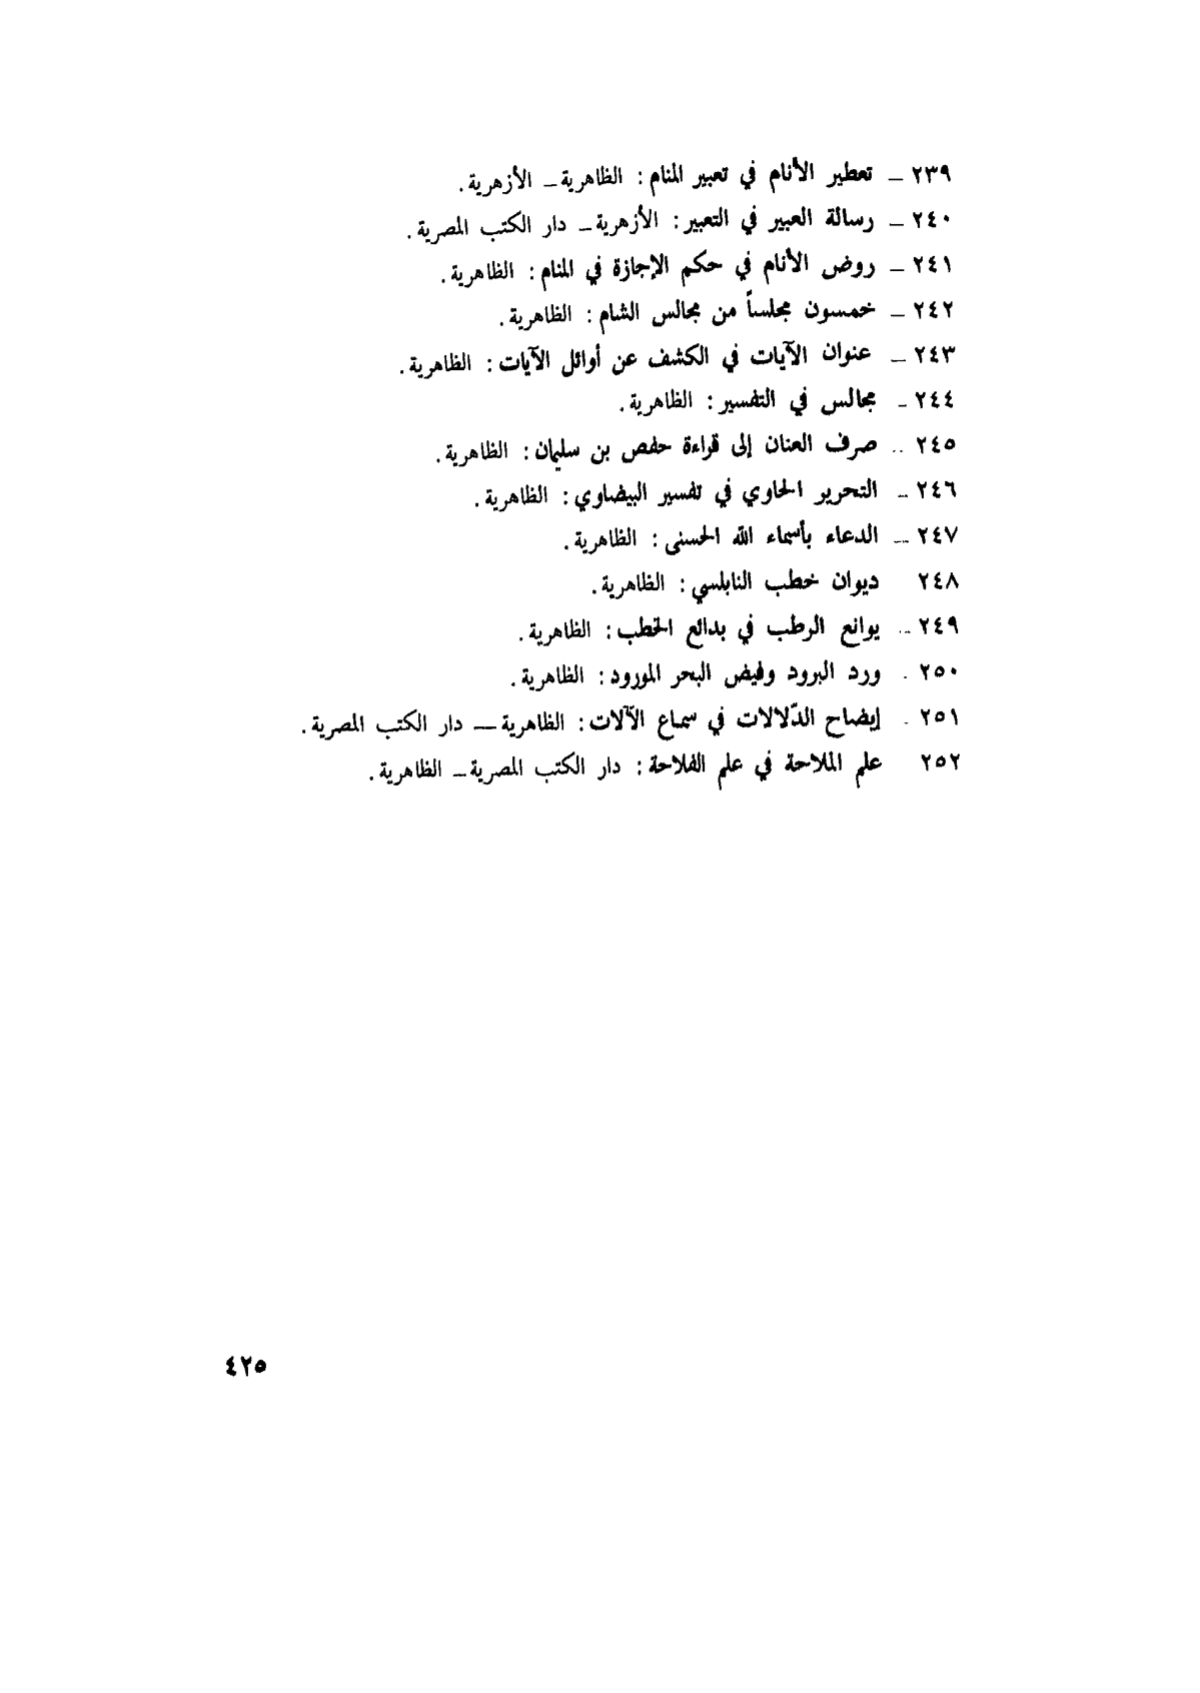 ٢٣٩ ــ تعطير الأنام في تعبير المنام : الظاهرية ــ الأزهرية .
٢٤٠ ــ رسالة العبير في التعبير : الأزهرية ــ دار الكتب المصرية .
٢٤١ ــ روض الأنام في حكم الإجازة في المنام : الظاهرية .
٢٤٢ ــ خمسون مجلساً من مجالس الشام : الظاهرية .
٢٤٣ ــ عنوان الآيات في الكشف عن أوائل الآيات : الظاهرية .
٢٤٤ ــ مجالس في التفسير : الظاهرية .
٢٤٥ .. صرف العنان إلى قراءة حفص بن سليمان : الظاهرية .
٢٤٦ ــ التحرير الحاوي في تفسير البيضاوي : الظاهرية .
٢٤٧ ــ الدعاء بأسماء الله الحسنى : الظاهرية .
٢٤٨ ديوان خطب النابلسي : الظاهرية .
٢٤٩ .. يوانع الرطب في بدائع الخطب : الظاهرية .
٢٥٠ . ورد البرود وفيض البحر المورود : الظاهرية .
٢٥١ . إيضاح الدّلالات في سماع الآلات : الظاهرية ــ دار الكتب المصرية .
٢٥٢ علم الملاحة في علم الفلاحة : دار الكتب المصرية ــ الظاهرية .
٤٢٥